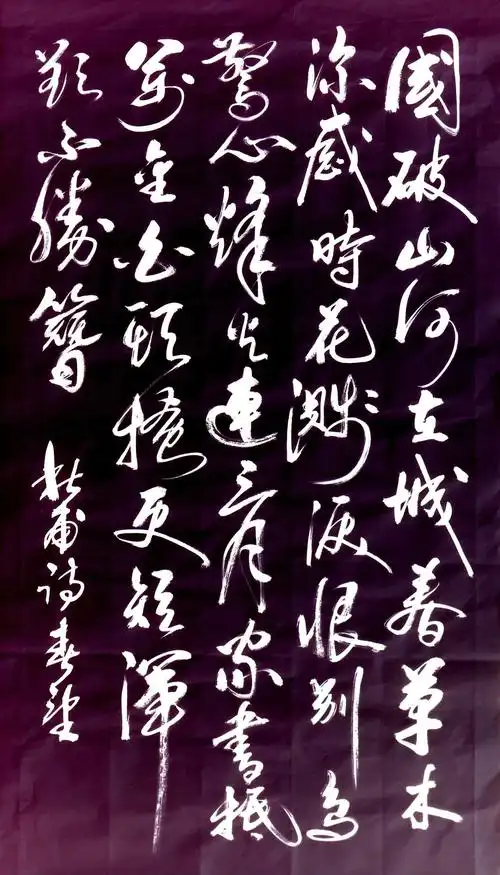 國破山河在城春草木
深感時花濺淚恨別鸟
驚心烽火連三月家書抵
萬金白頭搔更短渾
欲不勝簪
杜甫诗春望